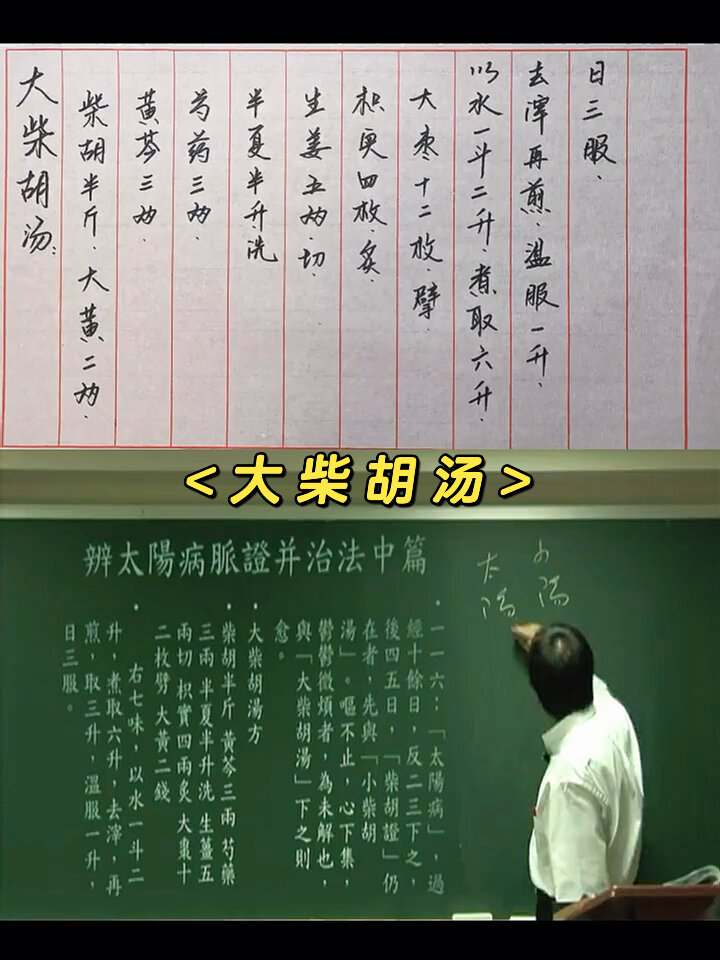 大柴胡汤：
柴胡半斤．大黃二两．
黃芩三两．
芍药三两．
半夏半升洗
生姜五两．切．
枳实四枚．炙．
大枣十二枚．擘．
以水一斗二升．煮取六升．
去滓再煎．温服一升．
日三服．
<大柴胡汤>
辨太陽病脈證并治法中篇
少陽
太陽
•一一六：「太陽病」，過
經十餘日，反二三下之，
後四五日，「柴胡證」仍
在者，先與「小柴胡
湯」。嘔不止，心下集，
鬱鬱微煩者，為未解也，
與「大柴胡湯」下之則
愈。
•大柴胡湯方
•柴胡半斤 黃芩三兩 芍藥
三兩 半夏半升洗 生薑五
兩切 枳實四兩炙 大棗十
二枚劈 大黃二錢
•右七味，以水一斗二
升，煮取六升，去滓，再
煎，取三升，溫服一升，
日三服。